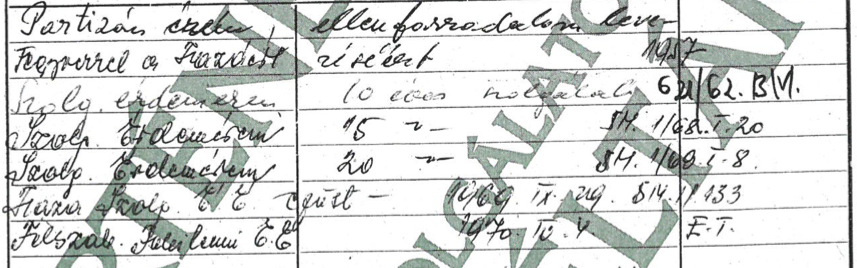 Partizán érem ellenforradalom leve-
Fegyverrel a Hazáért réséért 1957
Szolg. érdemérem 10 éves szolgálat 621/62. BM.
Szolg. Érdemérem 15 " - SH. 1/68.I.20
Szolg. Érdemérem 20 " - SH. 1/69.I.8.
Haza Szolg. É. E. ezüst - 1969 IX. 29. 514.1/133
Felszab. Jubileumi É.É 1970 IV. 4. E.T.